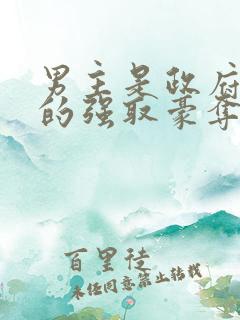 男主是政府
的强取豪夺
百里徒
未经同意禁止转载